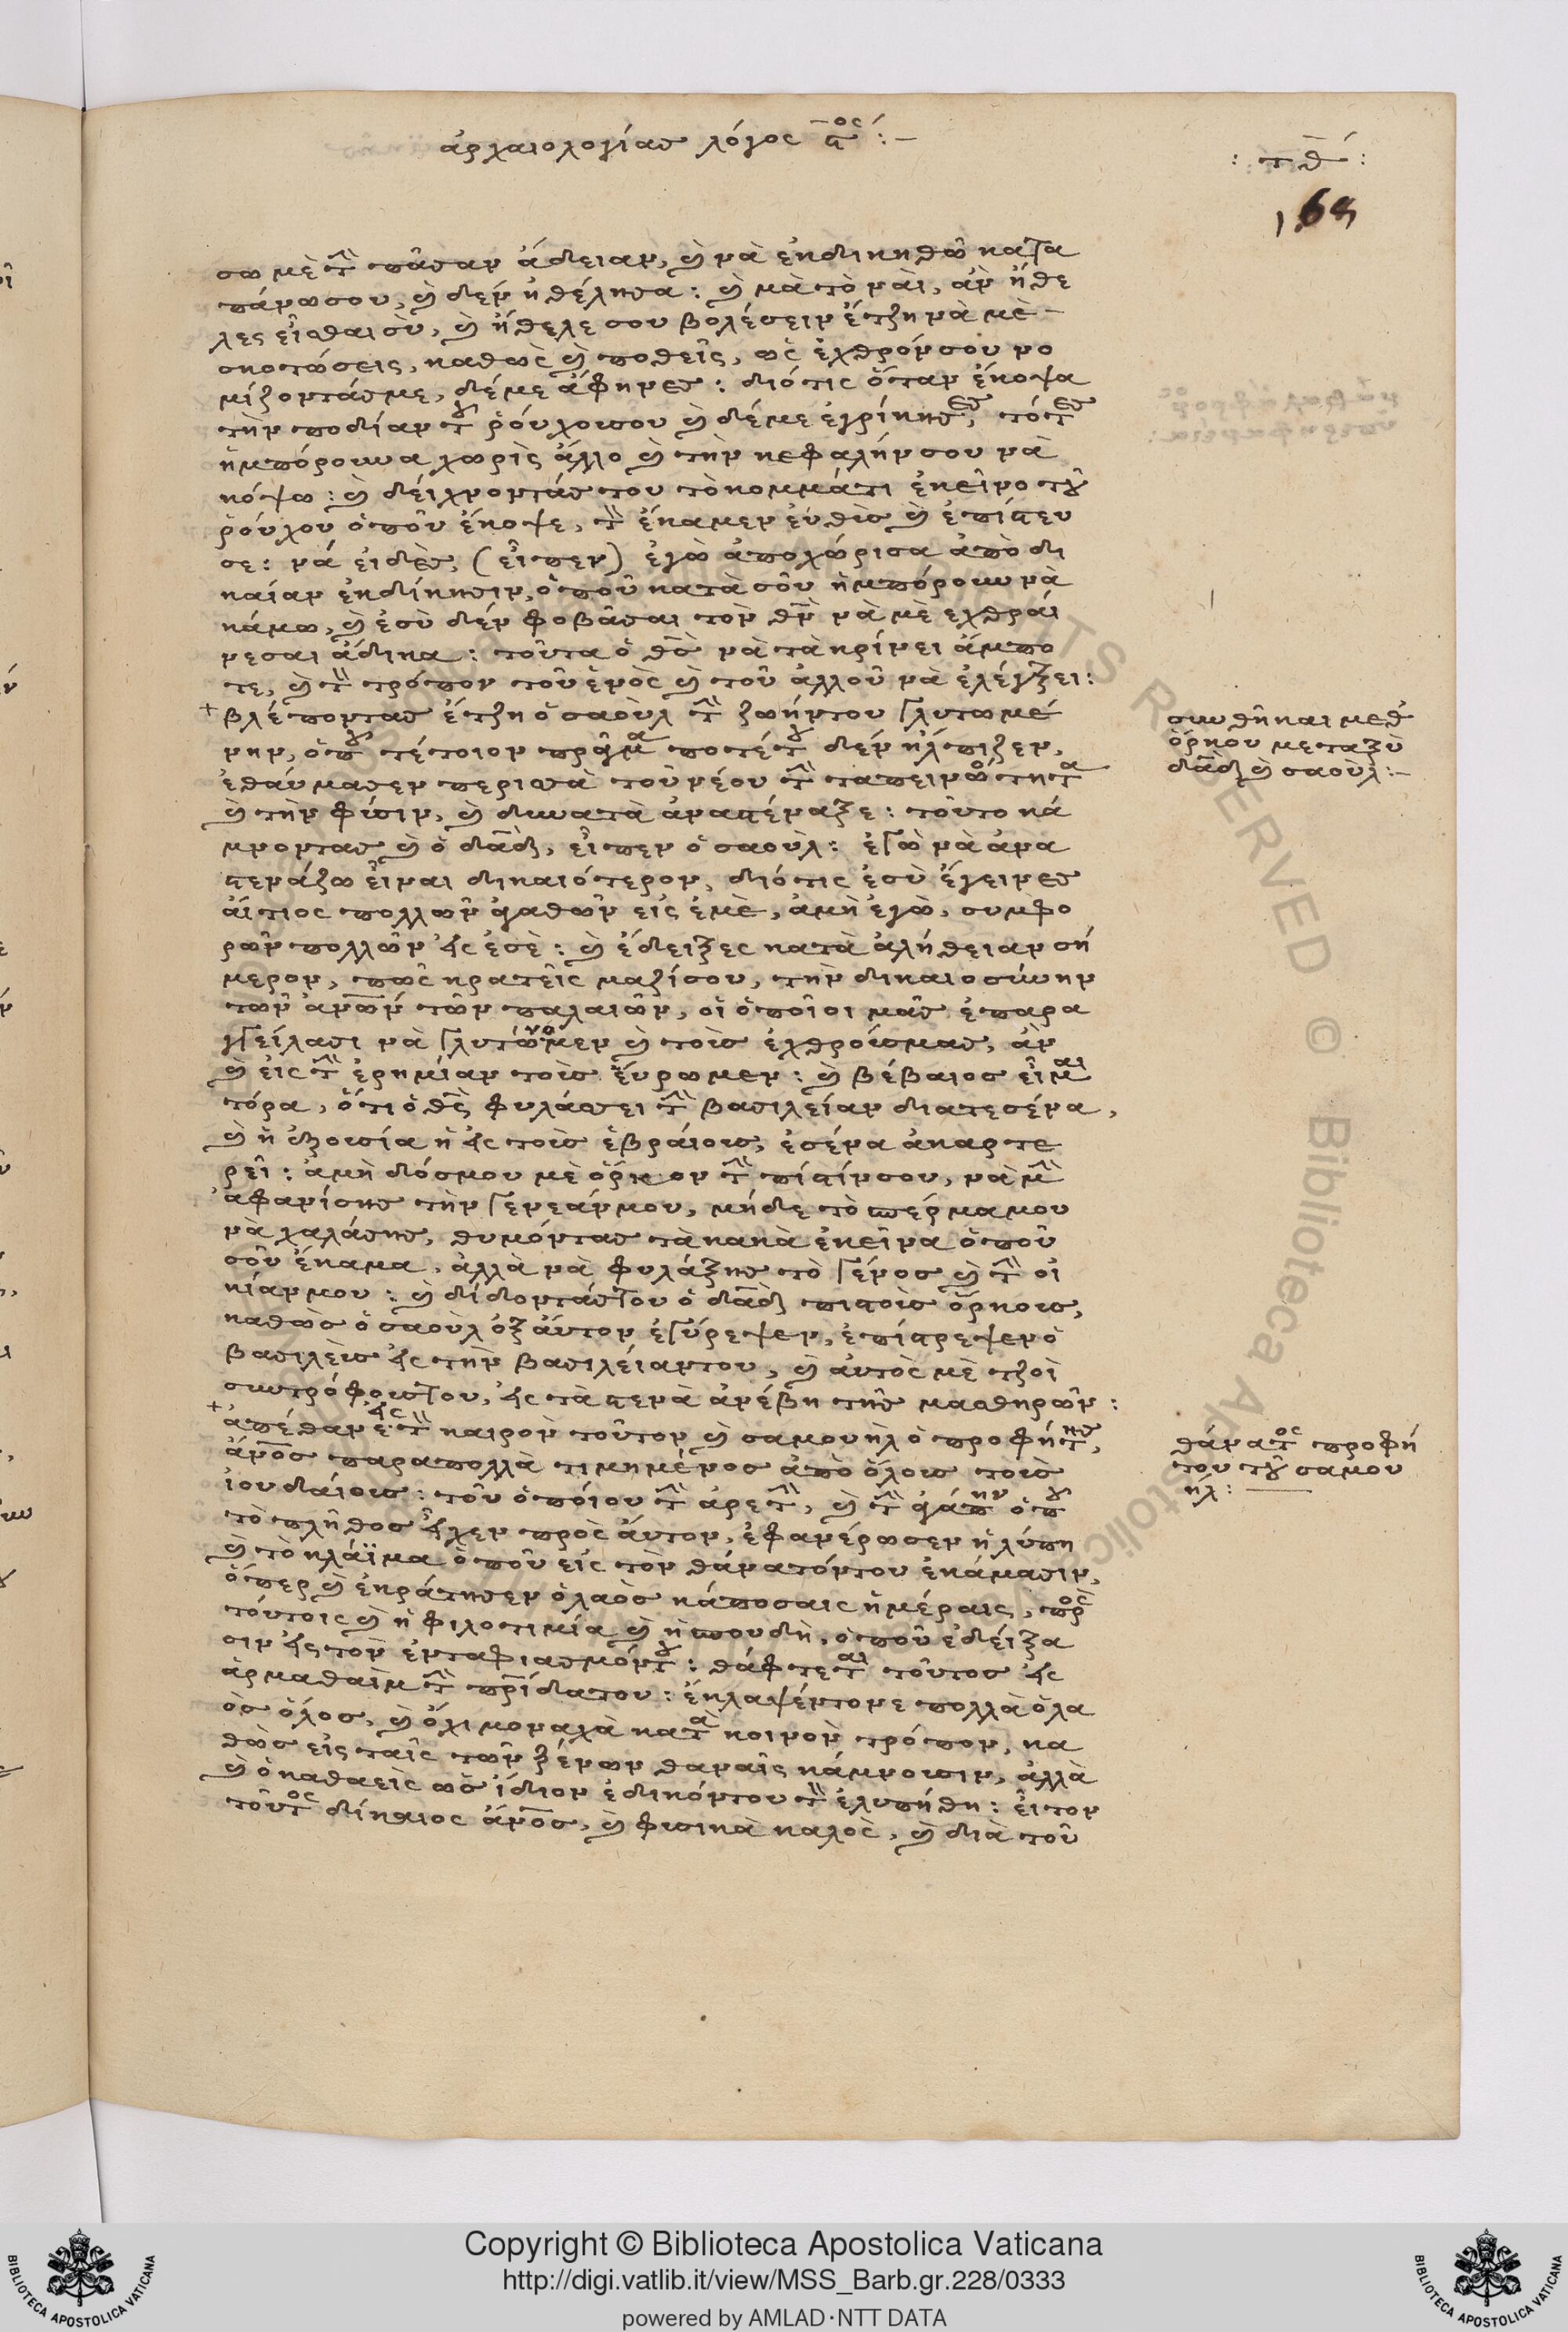 ἀρχαιολογίας λόγος ϛ^ος :–
: τθ :
169
σω μὲ τὴν πᾶσαν ἄδειαν, καὶ νὰ ἐκδικηθῶ κατα
πάνωσου, καὶ δὲν ἠθέλησα: καὶ μὰ τὸ ναὶ, ἀν ἤθε
λες εἶσθαι σὺ, καὶ ἤθελε σου βολέσειν ἔτζη νὰ μὲ
σκοτώσεις, καθὼς καὶ ποθεῖς, ὡς ἐχθρόν σου νο
μίζοντάς με, δέ με ἄφηνες: διότις ὅταν ἔκοψα
τὴν ποδίαν τοῦ ῥούχουσου καὶ δέ με ἐγρίκησες, τότες
ἠμπόρουνα χωρὶς ἄλλο καὶ τὴν κεφαλήν σου νὰ
κόψω: καὶ δείχνοντάς του τὸ κομμάτι ἐκεῖνο τοῦ
ῥούχου ὁποῦ ἔκοψε, τὸν ἔκαμεν εὐθὺς καὶ ἐπίστευ
σε: νά εἰδὲς, (εἶπεν) ἐγὼ ἀποχώρισα ἀπὸ δι
καίαν ἐκδίκησιν, ὁποῦ κατὰ σοῦ ἠμπόρουν νὰ
κάμω, καὶ ἐσὺ δὲν φοβᾶσαι τὸν θν νὰ μὲ εχθραί
νεσαι ἄδικα: τοῦτα ὁ θς νὰ τὰ κρίνει ἄμπο
τε, καὶ τὸν τρόπον τοῦ ἑνὸς καὶ τοῦ ἀλλοῦ νὰ ἐλέγξει:
+ βλέποντας ἔτζη ὁ σαοὺλ τὴν ζωήντου γλυτωμέ
νην, ὁποῦ τέτοιον πρᾶγμα ποτέτου δὲν ἤλπιζεν,
ἐθαύμασεν περισσὰ τοῦ νέου τὴν ταπεινώτητα
καὶ τὴν φύσιν, καὶ δυνατὰ ἀναστέναξε: τοῦτο κά
μνοντας καὶ ὁ δαδ, εἶπεν ὁ σαούλ: ἐγὼ νὰ ἀνα
στενάζω εἶναι δικαιότερον, διότις ἐσὺ ἔγεινες
αἴτιος πολλῶν ἀγαθῶν εἰς ἐμὲ, ἀμὴ ἐγὼ, συμφο
ρῶν πολλῶν εἰς ἐσὲ: καὶ ἔδειξες κατὰ ἀλήθειαν σή
μερον, πῶς κρατεῖς μαζίσου, τὴν δικαιοσύνην
τῶν ἀνων τῶν παλαιῶν, οἱ ὁποῖοι μᾶς ἐπαρα
γγείλασι νὰ γλυτώνομεν καὶ τοὺς ἐχθρούςμας, ἀν
καὶ εἰς τὴν ἐρημίαν τοὺς εὕρωμεν: καὶ βέβαιος εἶμαι
τόρα, ὅτι ὁ θς φυλάσσει τὴν βασιλείαν διατεσένα,
καὶ ἡ ἐξουσία ἡ εἰς τοὺς ἑβραίους, ἐσένα ἀκαρτε
ρεῖ: ἀμὴ δόσμου μὲ ὅρκον τὴν πίστίνσου, νὰ μὴν
ἀφανίσης τὴν γενεάνμου, μήδε τὸ σπέρμαμου
νὰ χαλάσης, θυμόντας τὰ κακὰ ἐκεῖνα ὁποῦ
σοῦ ἔκαμα, ἀλλὰ νὰ φυλάξης τὸ γένος καὶ τὴν οἰ
κίανμου: καὶ δίδοντάςτου ὁ δαδ πιστοὺς ὅρκους,
καθὼς ὁ σαοὺλ ὀξαύτον ἐγύρεψεν, ἐπίστρεψεν ὁ
βασιλεὺς εἰς τὴν βασιλείαντου, καὶ αὐτὸς μὲ τζοὶ
συντρόφουςτου, εἰς τὰ στενὰ ἀνέβη τῆς μασθηρῶν:
+ ἀπέθανε εἰς τὸν καιρὸν τοῦτον καὶ σαμουὴλ ὁ προφήτης,
ἄνος παραπολλὰ τιμημένος ἀπὸ ὅλους τοὺς
ἰουδαίους: τοῦ ὁποίου τὴν ἀρετὴν, καὶ τὴν ἀγάπην ὁποῦ
τὸ πλῆθος εἶχεν πρὸς αὐτον, ἐφανέρωσεν ἡ λύπη
καὶ τὸ κλάϊμα ὁποῦ εἰς τὸν θάνατόντου ἐκάμασιν,
ὅπερ καὶ ἐκράτησεν ὁ λαὸς κάποσαις ἡμέραις, πρὸς
τούτοις καὶ ἡ φιλοτιμία καὶ ἡ σπουδὴ, ὁποῦ ἐδείξα
σιν εἰς τὸν ἐνταφιασμόντου: θάφτεται τοῦτος εἰς
ἁρμαθαὶμ τὴν πρίδατου: ἐκλαψέντονε πολλὰ ὁ λα
ὸς ὅλος, καὶ ὄχι μοναχὰ κατὰ κοινὸν τρόπον, κα
θὼς εἰς ταῖς τῶν ξένων θαναῖς κάμνουσιν, ἀλλὰ
καὶ ὁ καθαεὶς ὡς ἴδιον ἐδικόντου τὸν ἐλυπήθη: εἶτον
τοῦτος δίκαιος ἄνος, καὶ φυσικὰ καλὸς, καὶ διὰ τοῦ
συνθῆκαι μεθ
ὅρκου μεταξὺ
δαδ καὶ σαούλ:–
θάνατος προφή
του τοῦ σαμου
ήλ:
Copyright © Biblioteca Apostolica Vaticana
http://digi.vatlib.it/view/MSS_Barb.gr.228/0333
powered by AMLAD·NTT DATA